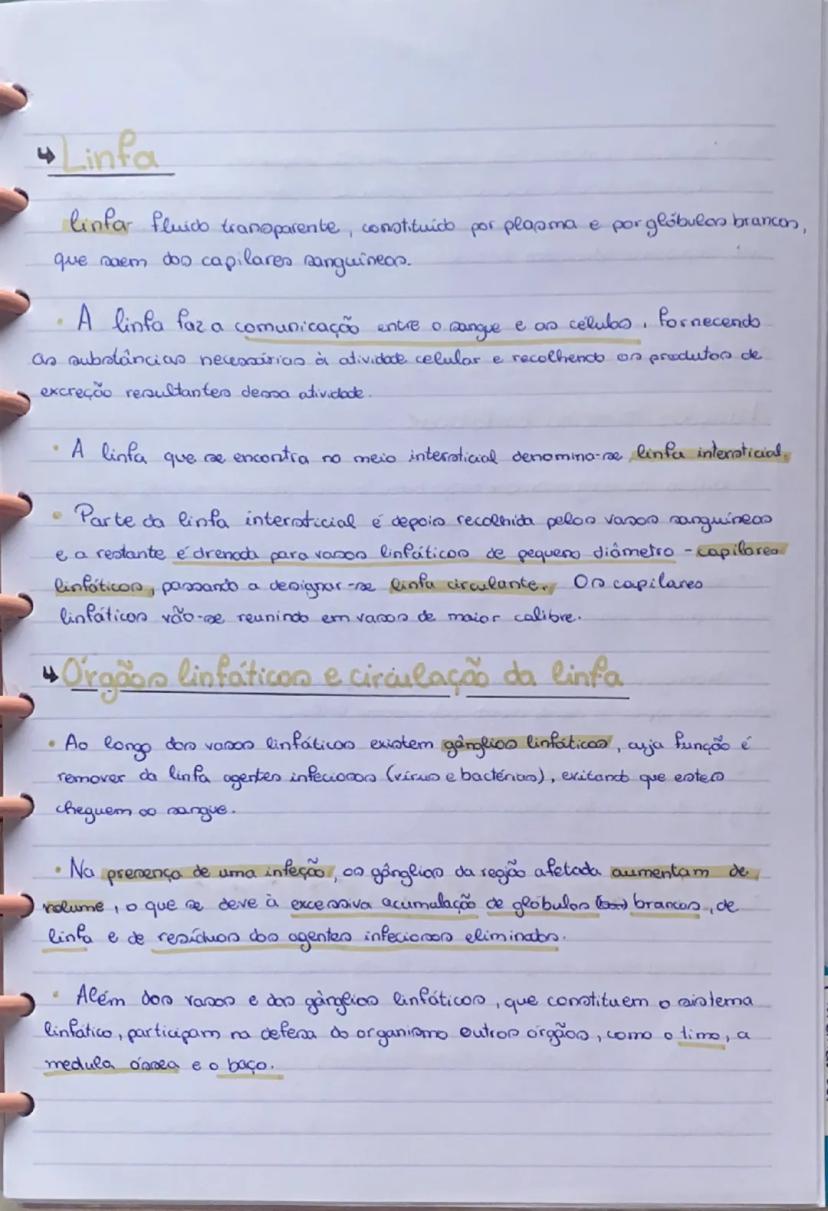 ↳ Linfa
linfa: fluido transparente, constituído por plasma e por glóbulos brancos,
que saem dos capilares sanguíneos.
• A linfa faz a comunicação entre o sangue e as células, fornecendo
as substâncias necessárias à atividade celular e recolhendo os produtos de
excreção resultantes dessa atividade.
• A linfa que se encontra no meio intersticial denomina-se linfa intersticial.
• Parte da linfa intersticial é depois recolhida pelos vasos sanguíneos
e a restante é drenada para vasos linfáticos de pequeno diâmetro - capilares
linfáticos, passando a designar-se linfa circulante. Os capilares
linfáticos vão-se reunindo em vasos de maior calibre.
↳ Órgãos linfáticos e circulação da linfa
• Ao longo dos vasos linfáticos existem gânglios linfáticos, cuja função é
remover da linfa agentes infeciosos (vírus e bactérias), evitando que estes
cheguem ao sangue.
• Na presença de uma infeção, os gânglios da região afetada aumentam de
volume, o que se deve à excessiva acumulação de glóbulos brancos, de
linfa e de resíduos dos agentes infeciosos eliminados.
• Além dos vasos e dos gânglios linfáticos, que constituem o sistema
linfático, participam na defesa do organismo outros órgãos, como o timo, a
medula óssea e o baço.